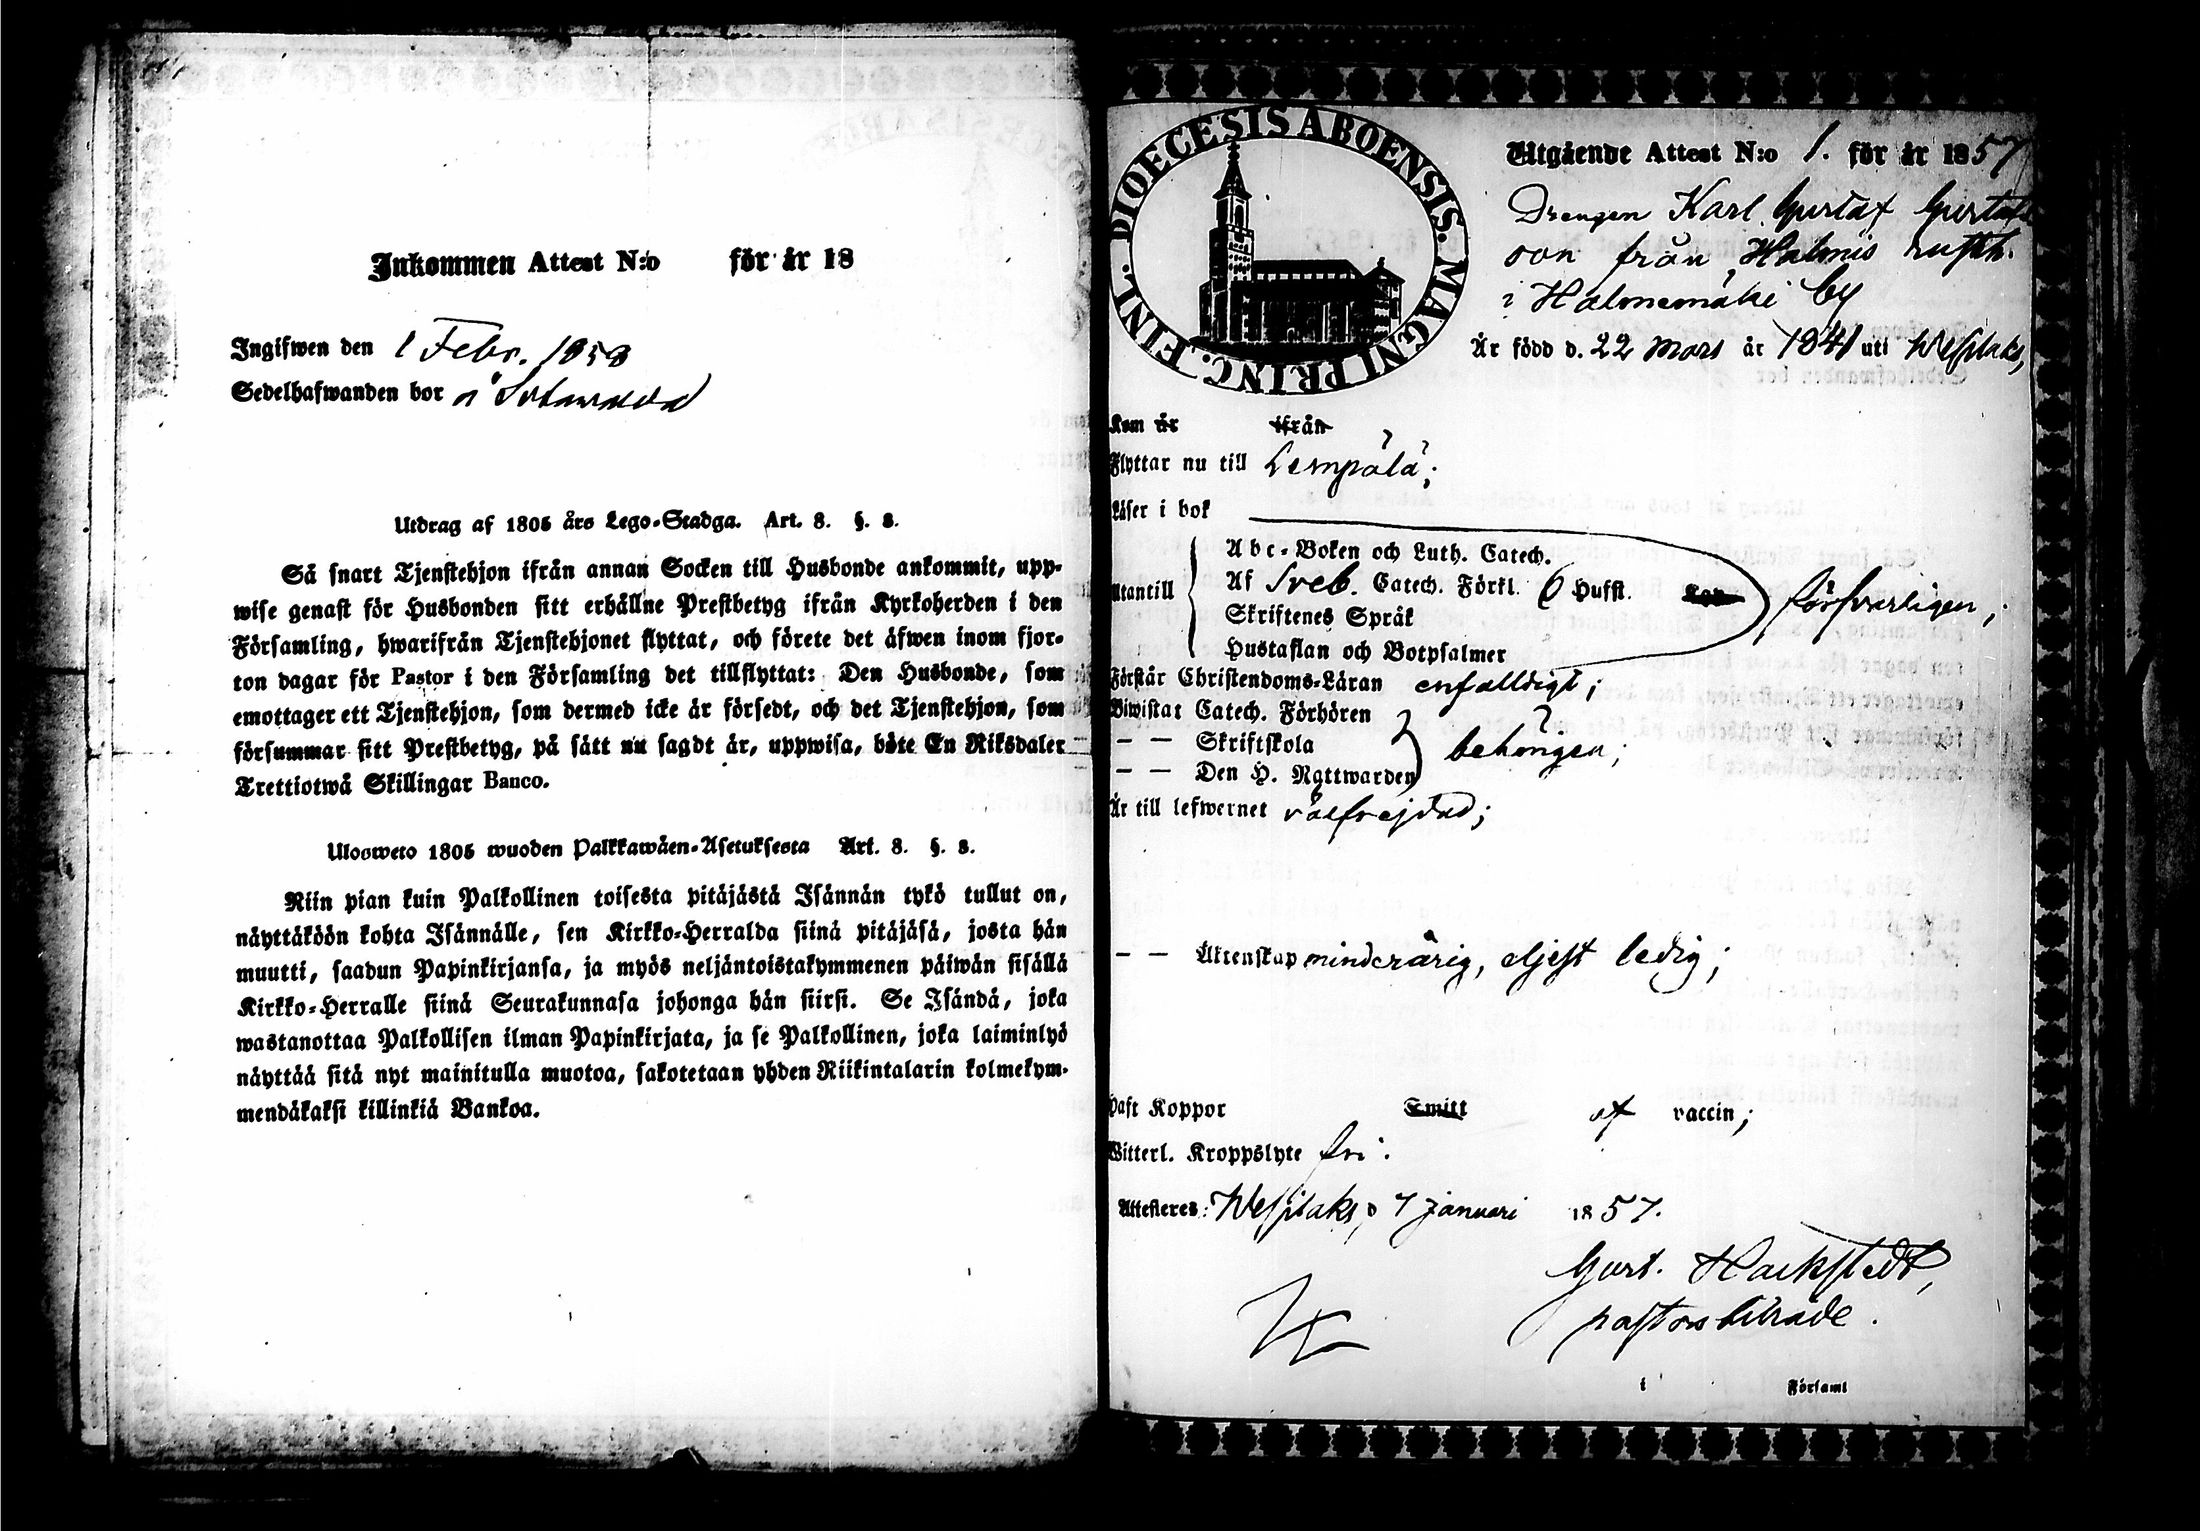 Inkommen Attest N:o för år 18
Ingifwen den 1 Febr. 1858
Sedelhafwanden bor å
Utdrag af 1805 års Lego-Stadga. Art. 8. §. 8.
Så snart Tjenstehjon ifrån annan Socken till Husbonde ankommit, upp-
wise genast för Husbonden sitt erhållne Prestbetyg ifrån Kyrkoherden i den
Församling, hwarifrån Tjenstehjonet flyttat, och förete det äfwen inom fjor-
ton dagar för Pastor i den Församling det tillflyttat: Den Husbonde, som
emottager ett Tjenstehjon, som dermed icke är försedt, och det Tjenstehjon, som
försummar sitt Prestbetyg, på sätt nu sagdt är, uppwisa, böte En Riksdaler
Trettiotwå Skillingar Banco.
Ulosweto 1805 wuoden Palkkawäen-Asetuksesta Art. 8. §. 8.
Niin pian kuin Palkollinen toisesta pitäjästä Isännän tykö tullut on,
näyttäköön kohta Isännälle, sen Kirkko-Herralda siinä pitäjäsä, josta hän
muutti, saadun Papinkirjansa, ja myös neljäntoistakymmenen päiwän sisällä
Kirkko-Herralle siinä Seurakunnasa johonga hän siirsi. Se Isändä, joka
wastanottaa Palkollisen ilman Papinkirjata, ja se Palkollinen, joka laiminlyö
näyttää sitä nyt mainitulla muotoa, sakotetaan yhden Riikintalarin kolmekym-
mendäkaksi killinkiä Bankoa.
DIOECESIS ABOENSIS. MAGNI PRINC. FINL.
Utgående Attest N:o 1. för år 1857
Drengen Karl Gustaf Gustafs
son från Halmis rusth.
i Halmemäki by
Är född d. 22 Mars år 1841 uti Wesilaks,
Kom år ifrån
Flyttar nu till Lempälä;
Läser i bok
Abc-Boken och Luth. Catech.
Utantill Af Sveb. Catech. Förkl. 6 Hufst. försvarligen;
Skriftenes Språk
Hustaflan och Botpsalmer
Förstår Christendoms-Läran enfalldigt;
Biwistat Catech. Förhören
— — Skriftskola behörigen;
— — Den H. Nattwarden
Är till lefwernet välfrejdad;
— — Äktenskap minderårig, eljest ledig;
Haft Koppor Smitt af vaccin;
Witterl. Kroppslyte fri.
Attesteres: Wesilaks, d 7 januari 1857.
Gust. Hackstedt,
pastors biträde.
i Församl